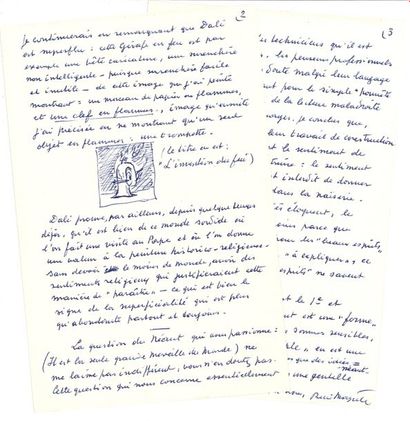 2
je continuerais en remarquant que Dali
est superflu : cette Girafe en feu est par
exemple une bête caricature, une surenchère
non intelligente – puisque surenchère facile
et inutile – de cette image que j'ai peinte
montrant : un morceau de papier en flammes,
et une clef en flammes, image qu'ensuite
j'ai précisée en ne montrant qu'un seul
objet en flammes : une trompette.
(le titre en est :
"L'invention du feu)
Dali prouve, par ailleurs, depuis quelque temps
déjà, qu'il est bien de ce monde sordide où
l'on fait une visite au Pape et où l'on donne
une valeur à la peinture historico-religieuse –
sans devoir le moins du monde, avoir des
sentiments religieux qui justifieraient cette
manière de "paraître" – ce qui est bien le
signe de la superficialité qui est plus
qu'abondante partout et toujours.
La question du Néant qui vous passionne :
(Il est la seule grande merveille du Monde) ne
me laisse pas indifférent, vous n'en doutez pas.
Cette question qui nous concerne essentiellement
3
techniciens qu'il est
les penseurs professionnels
doute malgré leur langage
pour le simple
de la lecture maladroite
je conclus que
leur travail de construction
et le sentiment de
le sentiment
interdit de donner
dans la niaiserie.
éloquent, le
parce que
les "beaux esprits",
à expliquer, ce
ne savent
et le 1er et
est une "forme"
sommes sensibles,
en est une
que des idées
une gentille
René Magritte